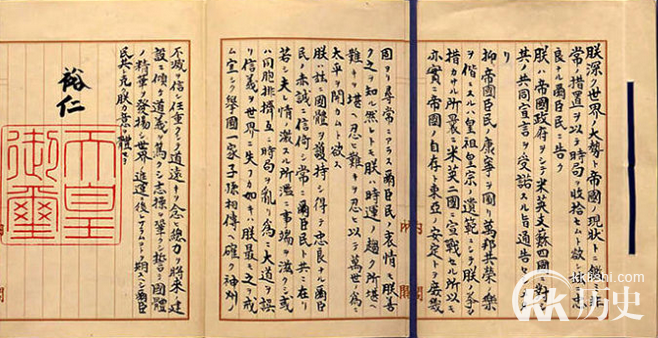 朕深ク世界ノ大勢ト帝國ノ現狀トニ鑑ミ非
常ノ措置ヲ以テ時局ヲ收拾セムト欲シ茲ニ忠
良ナル爾臣民ニ告ク
朕ハ帝國政府ヲシテ米英支蘇四國ニ對シ
其ノ共同宣言ヲ受諾スル旨通告セシメタ
リ
抑帝國臣民ノ康寧ヲ圖リ萬邦共榮ノ樂
ヲ偕ニスルハ皇祖皇宗ノ遺範ニシテ朕ノ拳々
措カサル所曩ニ米英二國ニ宣戰セル所以モ
亦實ニ帝國ノ自存ト東亞ノ安定トヲ庶幾
内閣
固ヨリ尋常ニアラス爾臣民ノ衷情モ朕善
ク之ヲ知ル然レトモ朕ハ時運ノ趨ク所堪ヘ
難キヲ堪ヘ忍ヒ難キヲ忍ヒ以テ萬世ノ爲ニ
太平ヲ開カムト欲ス
朕ハ茲ニ國體ヲ護持シ得テ忠良ナル爾臣
民ノ赤誠ニ信倚シ常ニ爾臣民ト共ニ在リ
若シ夫レ情ノ激スル所濫ニ事端ヲ滋クシ或
ハ同胞排擠互ニ時局ヲ亂リ爲ニ大道ヲ誤
リ信義ヲ世界ニ失フカ如キハ朕最モ之ヲ戒
ム宜シク擧國一家子孫相傳ヘ確ク神州ノ
内閣
不滅ヲ信シ任重クシテ道遠キヲ念ヒ總力ヲ將來ノ建
設ニ傾ケ道義ヲ篤クシ志操ヲ鞏クシ誓テ國體
ノ精華ヲ發揚シ世界ノ進運ニ後レサラムコトヲ期スヘシ爾臣
民其レ克ク朕カ意ヲ體セヨ
裕仁
天皇
御璽
kklishi.com
历史